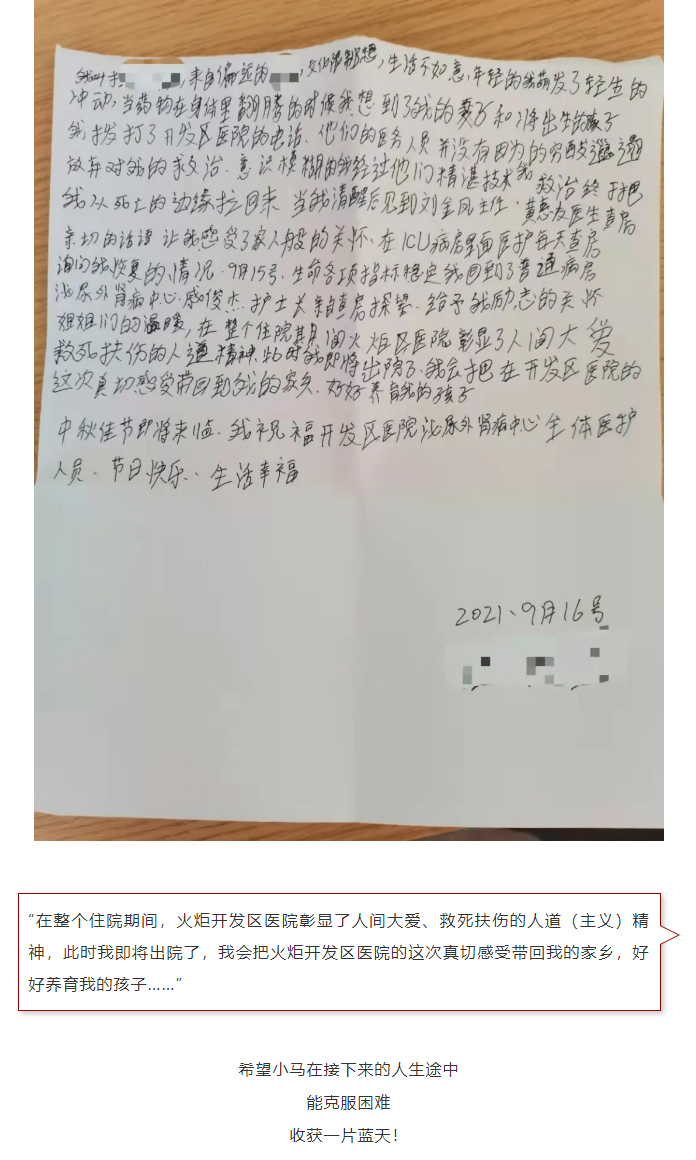 我叫,来自偏远的,文化薄,生活不如意,年轻的我萌发了轻生的
冲动,当药物在身体里翻腾的时候我想到了我的妻子和将出生的孩子
我拨打了开发区医院的电话。他们的医务人员并没有因为的穷酸邋遢
放弃对我的救治。意识模糊的我经过他们精湛技术救治终于把
我从死亡的边缘拉回来 当我清醒后见到刘金凤主任、黄医生查房
亲切的话语 让我感受了家人般的关怀、在ICU病房里面医护每天查房
询问我恢复的情况。9月15号、生命各项指标稳定我回到了普通病房
泌尿外肾病中心、俊杰护士长亲自查房探望、给予我励志的关怀
姐姐们的温暖,在整个住院其月间火炬区医院彰显了人间大爱
救死扶伤的人道精神 此时我即将出院了、我会把在开发区医院的
这次真切感受带回到我的家乡、好好养育我的孩子
中秋佳节即将来临、我祝福开发区医院泌尿外肾病中心全体医护
人员、节日快乐、生活幸福
2021、9月16号
“在整个住院期间,火炬开发区医院彰显了人间大爱、救死扶伤的人道(主义)精
神,此时我即将出院了,我会把火炬开发区医院的这次真切感受带回我的家乡,好
好养育我的孩子……”
希望小马在接下来的人生途中
能克服困难
收获一片蓝天!